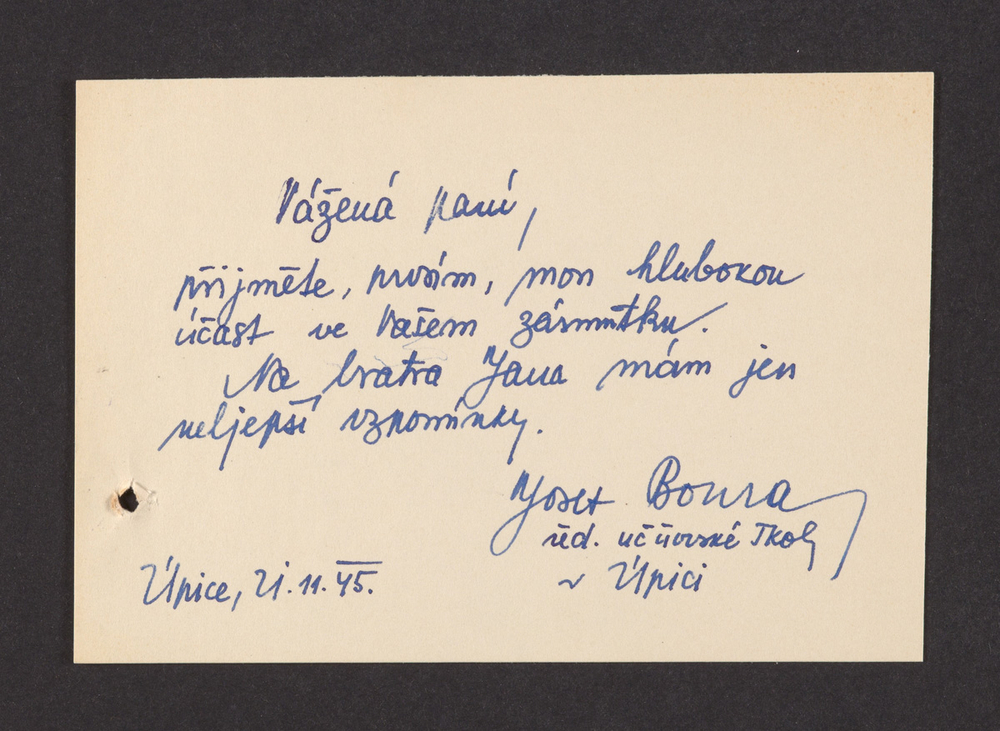 Vážená paní,
přijměte, prosím, mou hlubokou
účast ve Vašem zármutku.
Na bratra Jana mám jen
neljepší vzpomínky.
Josef Boura
řed. učňovské školy
v Úpici
Úpice, 21.11.45.